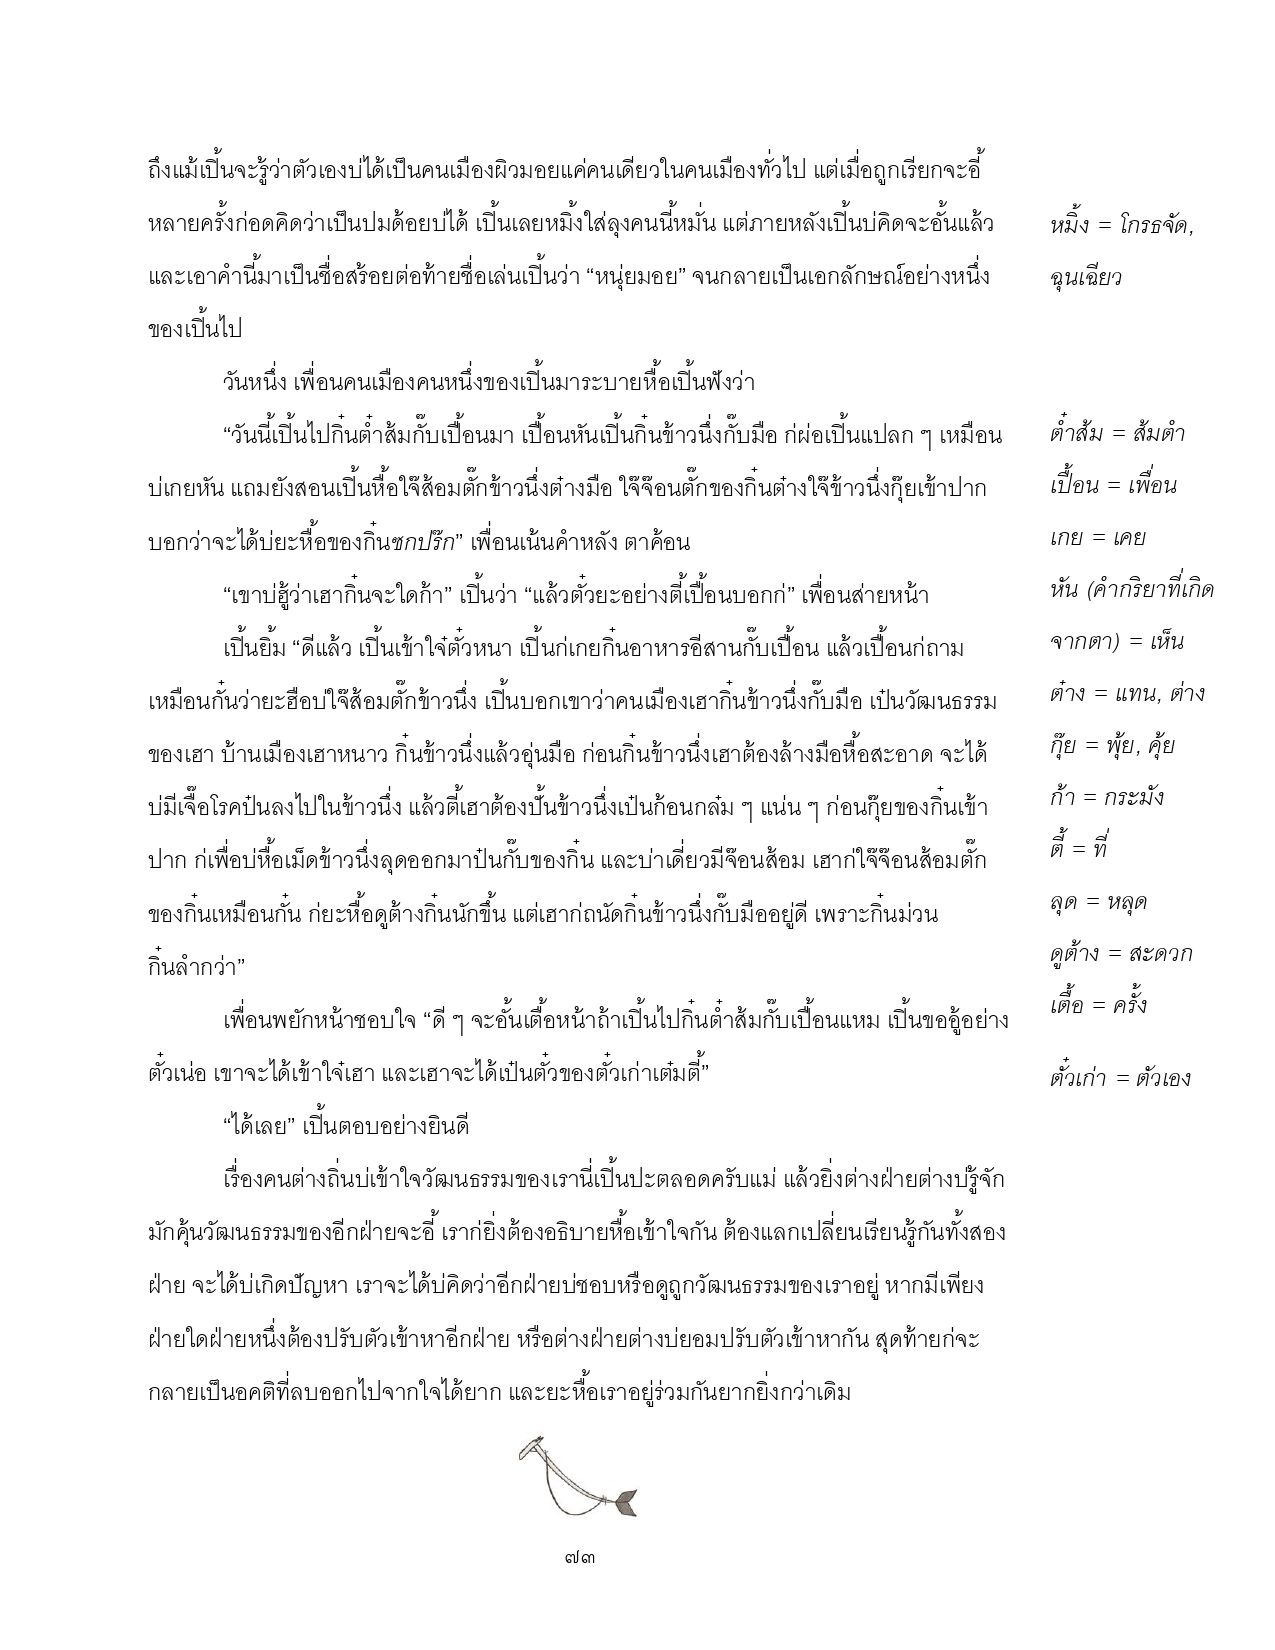 ถึงแม้เปิ้นจะรู้ว่าตัวเองบ่ได้เป็นคนเมืองผิวมอยแค่คนเดียวในคนเมืองทั่วไป แต่เมื่อถูกเรียกจะอี้
หลายครั้งก่อดคิดว่าเป็นปมด้อยบ่ได้ เปิ้นเลยหมิ้งใส่ลุงคนนี้หมั่น แต่ภายหลังเปิ้นบ่คิดจะอั้นแล้ว
และเอาคำนี้มาเป็นชื่อสร้อยต่อท้ายชื่อเล่นเปิ้นว่า “หนุ่ยมอย” จนกลายเป็นเอกลักษณ์อย่างหนึ่ง
ของเปิ้นไป
วันหนึ่ง เพื่อนคนเมืองคนหนึ่งของเปิ้นมาระบายหื้อเปิ้นฟังว่า
“วันนี้เปิ้นไปกิ๋นต๋ำส้มกั๊บเปื้อนมา เปื้อนหันเปิ้นกิ๋นข้าวนึ่งกั๊บมือ ก่ผ่อเปิ้นแปลก ๆ เหมือน
บ่เกยหัน แถมยังสอนเปิ้นหื้อใจ๊ส้อมตั๊กข้าวนึ่งต๋างมือ ใจ๊จ๊อนตั๊กของกิ๋นต๋างใจ๊ข้าวนึ่งกุ๊ยเข้าปาก
บอกว่าจะได้บ่ยะหื้อของกิ๋นซกปร๊ก” เพื่อนเน้นคำหลัง ตาค้อน
“เขาบ่ฮู้ว่าเฮากิ๋นจะใดก้า” เปิ้นว่า “แล้วตั๋วยะอย่างตี้เปื้อนบอกก่” เพื่อนส่ายหน้า
เปิ้นยิ้ม “ดีแล้ว เปิ้นเข้าใจ๋ตั๋วหนา เปิ้นก่เกยกิ๋นอาหารอีสานกั๊บเปื้อน แล้วเปื้อนก่ถาม
เหมือนกั๋นว่ายะฮือบ่ใจ๊ส้อมตั๊กข้าวนึ่ง เปิ้นบอกเขาว่าคนเมืองเฮากิ๋นข้าวนึ่งกั๊บมือ เป๋นวัฒนธรรม
ของเฮา บ้านเมืองเฮาหนาว กิ๋นข้าวนึ่งแล้วอุ่นมือ ก่อนกิ๋นข้าวนึ่งเฮาต้องล้างมือหื้อสะอาด จะได้
บ่มีเจื๊อโรคป๋นลงไปในข้าวนึ่ง แล้วตี้เฮาต้องปั้นข้าวนึ่งเป๋นก้อนกล๋ม ๆ แน่น ๆ ก่อนกุ๊ยของกิ๋นเข้า
ปาก ก่เพื่อบ่หื้อเม็ดข้าวนึ่งลุดออกมาป๋นกั๊บของกิ๋น และบ่าเดี่ยวมีจ๊อนส้อม เฮาก่ใจ๊จ๊อนส้อมตั๊ก
ของกิ๋นเหมือนกั๋น ก่ยะหื้อดูต้างกิ๋นนักขึ้น แต่เฮาก่ถนัดกิ๋นข้าวนึ่งกั๊บมืออยู่ดี เพราะกิ๋นม่วน
กิ๋นลำกว่า”
เพื่อนพยักหน้าชอบใจ “ดี ๆ จะอั้นเตื้อหน้าถ้าเปิ้นไปกิ๋นต๋ำส้มกั๊บเปื้อนแหม เปิ้นขออู้อย่าง
ตั๋วเน่อ เขาจะได้เข้าใจ๋เฮา และเฮาจะได้เป๋นตั๋วของตั๋วเก่าเต๋มตี้”
“ได้เลย” เปิ้นตอบอย่างยินดี
เรื่องคนต่างถิ่นบ่เข้าใจวัฒนธรรมของเรานี่เปิ้นปะตลอดครับแม่ แล้วยิ่งต่างฝ่ายต่างบ่รู้จัก
มักคุ้นวัฒนธรรมของอีกฝ่ายจะอี้ เราก่ยิ่งต้องอธิบายหื้อเข้าใจกัน ต้องแลกเปลี่ยนเรียนรู้กันทั้งสอง
ฝ่าย จะได้บ่เกิดปัญหา เราจะได้บ่คิดว่าอีกฝ่ายบ่ชอบหรือดูถูกวัฒนธรรมของเราอยู่ หากมีเพียง
ฝ่ายใดฝ่ายหนึ่งต้องปรับตัวเข้าหาอีกฝ่าย หรือต่างฝ่ายต่างบ่ยอมปรับตัวเข้าหากัน สุดท้ายก่จะ
กลายเป็นอคติที่ลบออกไปจากใจได้ยาก และยะหื้อเราอยู่ร่วมกันยากยิ่งกว่าเดิม
หมิ้ง = โกรธจัด,
ฉุนเฉียว
ต๋ำส้ม = ส้มตำ
เปื้อน = เพื่อน
เกย = เคย
หัน (คำกริยาที่เกิด
จากตา) = เห็น
ต๋าง = แทน, ต่าง
กุ๊ย = พุ้ย, คุ้ย
ก้า = กระมัง
ตี้ = ที่
ลุด = หลุด
ดูต้าง = สะดวก
เตื้อ = ครั้ง
ตั๋วเก่า = ตัวเอง
๗๓